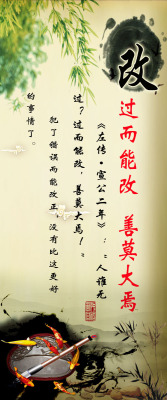 改
过而能改 善莫大焉
《左传·宣公二年》：“人谁无
过？过而能改，善莫大焉！”
犯了错误而能改正，没有比这更好
的事情了。